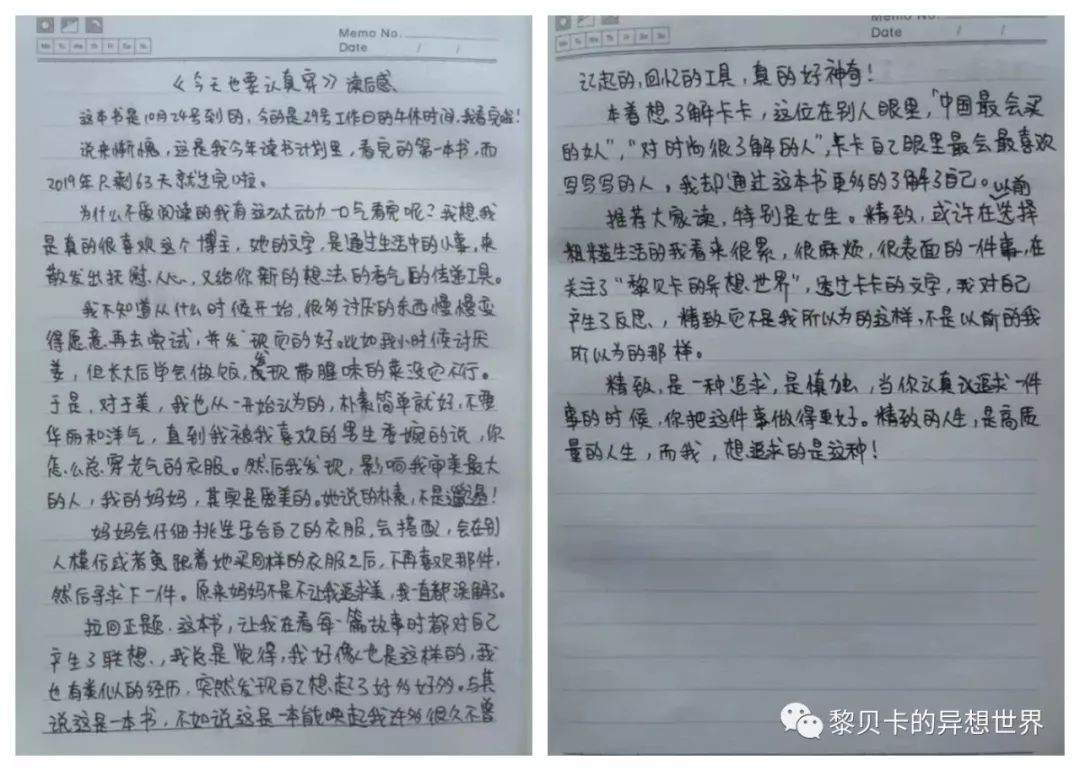 Mo Tu We Th Fr Sa Su
Memo No.
Date / /
《今天也要认真穿》读后感
这本书是10月24号到的,今的是29号工作日的午休时间,我看完啦!
说来惭愧,这是我今年读书计划里,看完的第一本书,而
2019年只剩63天就过完啦。
为什么不爱阅读的我有这么大动力一口气看完呢?我想我
是真的很喜欢这个博主,她的文字,是通过生活中的小事,来
散发出抚慰人心,又给你新的想法的香气的传递工具。
我不知道从什么时候开始,很多讨厌的东西慢慢变
得愿意再去尝试,并发现它的好。比如我小时候讨厌
姜,但长大后学会做饭,发现带腥味的菜没它不行。
于是,对于美,我也从一开始认为的,朴素简单就好,不要
华丽和洋气,直到我被我喜欢的男生委婉的说,你
怎么总穿老气的衣服。然后我发现,影响我审美最大
的人,我的妈妈,其实是爱美的。她说的朴素,不是邋遢!
妈妈会仔细挑选适合自己的衣服,会搭配,会在别
人模仿或者跟着她买同样的衣服之后,不再喜欢那件,
然后寻求下一件。原来妈妈不是不让我追求美,我一直都误解了。
拉回正题,这本书,让我在看每一篇故事时都对自己
产生了联想,我总是觉得,我好像也是这样的,我
也有类似的经历,突然发现自己想起了好多好多。与其
说这是一本书,不如说这是一本能唤起我许多很久不曾
Mo Tu We Th Fr Sa Su
Memo No.
Date / /
记起的,回忆的工具,真的好神奇!
本着想了解卡卡,这位在别人眼里,“中国最会买
的女人”,“对时尚很了解的人”,卡卡自己眼里最会最喜欢
写写写的人,我却通过这本书更多的了解了自己。
推荐大家读,特别是女生。精致,或许在以前选择
粗糙生活的我看来很累,很麻烦,很表面的一件事,在
关注了“黎贝卡的异想世界”,透过卡卡的文字,我对自己
产生了反思,精致它不是我所以为的这样,不是以前的我
所以为的那样。
精致,是一种追求,是慎独,当你认真议追求一件
事的时候,你把这件事做得更好。精致的人生,是高质
量的人生,而我,想追求的是这种!
黎贝卡的异想世界